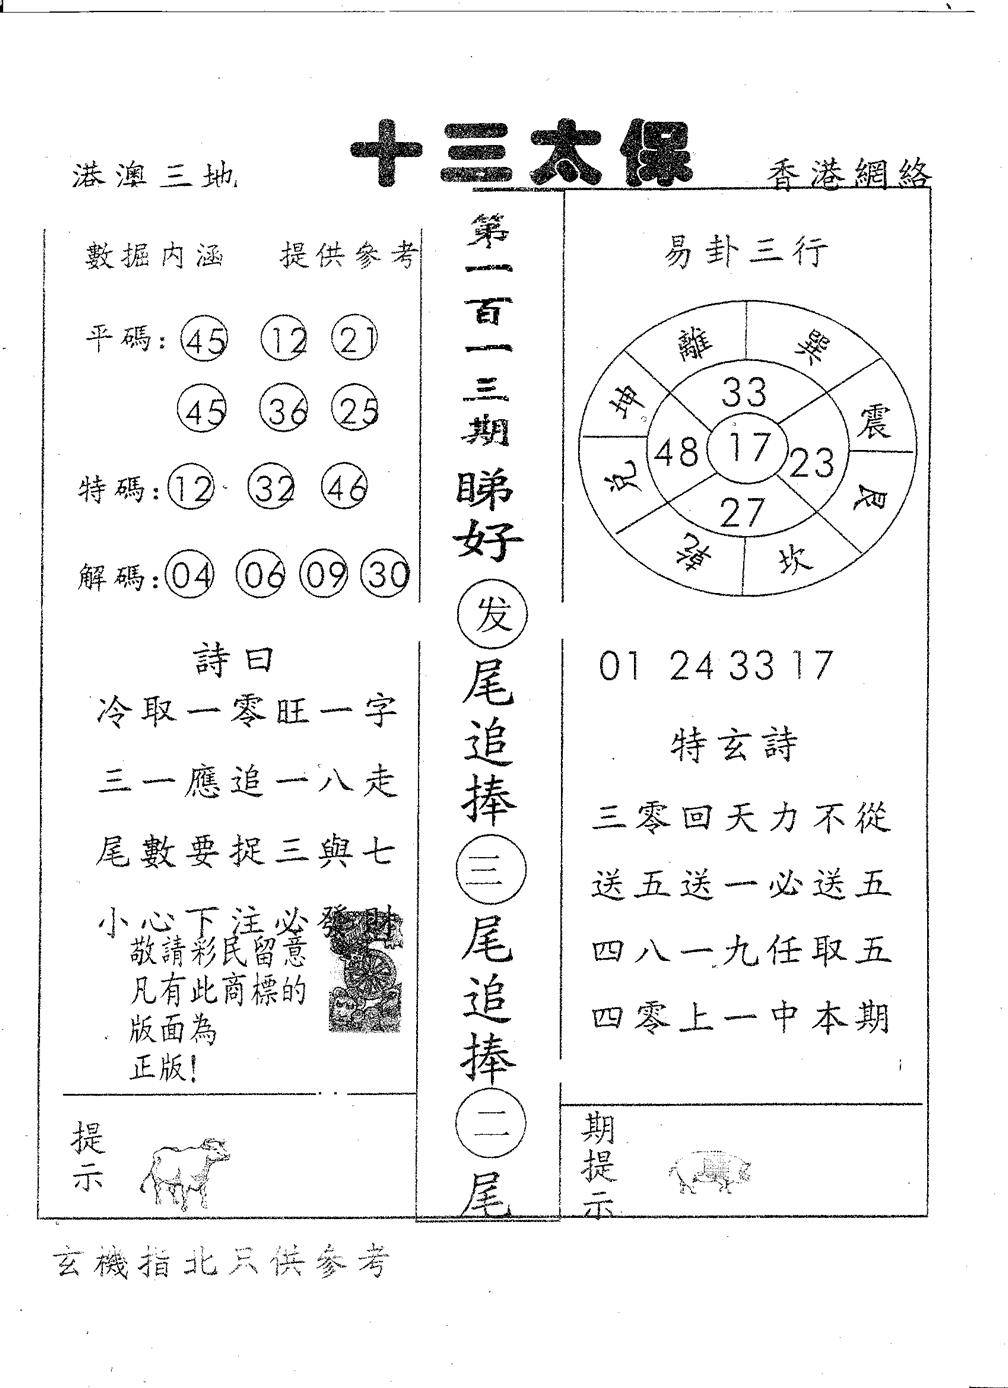 十三太保
港澳三地
香港網絡
數掘内涵 提供參考
平碼: 45 12 21
45 36 25
特碼: 12 32 46
解碼: 04 06 09 30
詩曰
冷取一零旺一字
三一應追一八走
尾數要捉三與七
小心下注必發財
敬請彩民留意
凡有此商標的
版面為
正版!
提示
第一百一三期睇好发尾追捧三尾追捧二尾
易卦三行
離 巽
坤 震
兌 艮
乾 坎
33
48 17 23
27
01 24 33 17
特玄詩
三零回天力不從
送五送一必送五
四八一九任取五
四零上一中本期
期提示
玄機指北只供參考